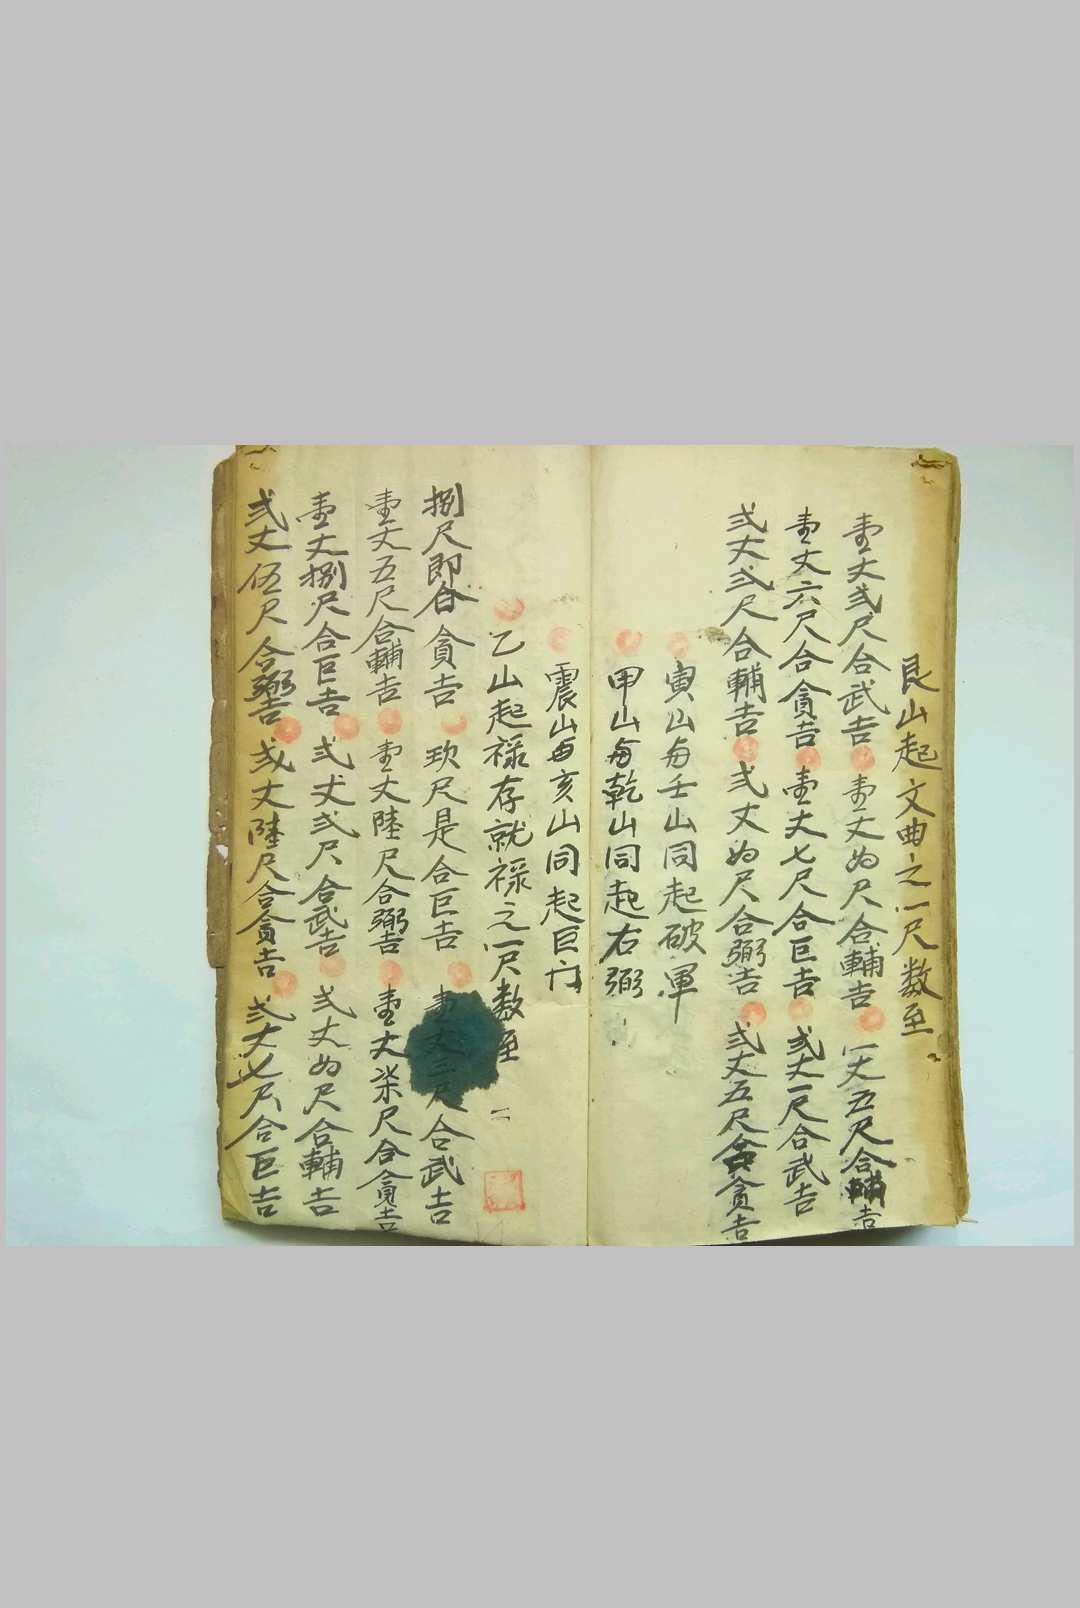 艮山起文曲之一尺数至
壹丈弍尺合武吉 壹丈四尺合輔吉 一丈五尺合輔吉
壹丈六尺合貪吉 壹丈七尺合巨吉 弍丈一尺合武吉
弍丈弍尺合輔吉 弍丈四尺合弼吉 弍丈五尺合貪吉
寅山与壬山同起破軍
甲山与乾山同起右弼
震山与亥山同起巨门
乙山起禄存就禄之一尺数至
捌尺即合貪吉 玖尺是合巨吉 壹丈三尺合武吉
壹丈五尺合輔吉 壹丈陸尺合弼吉 壹丈柒尺合貪吉
壹丈捌尺合巨吉 弍丈弍尺合武吉 弍丈四尺合輔吉
弍丈伍尺合弼吉 弍丈陸尺合貪吉 弍丈七尺合巨吉